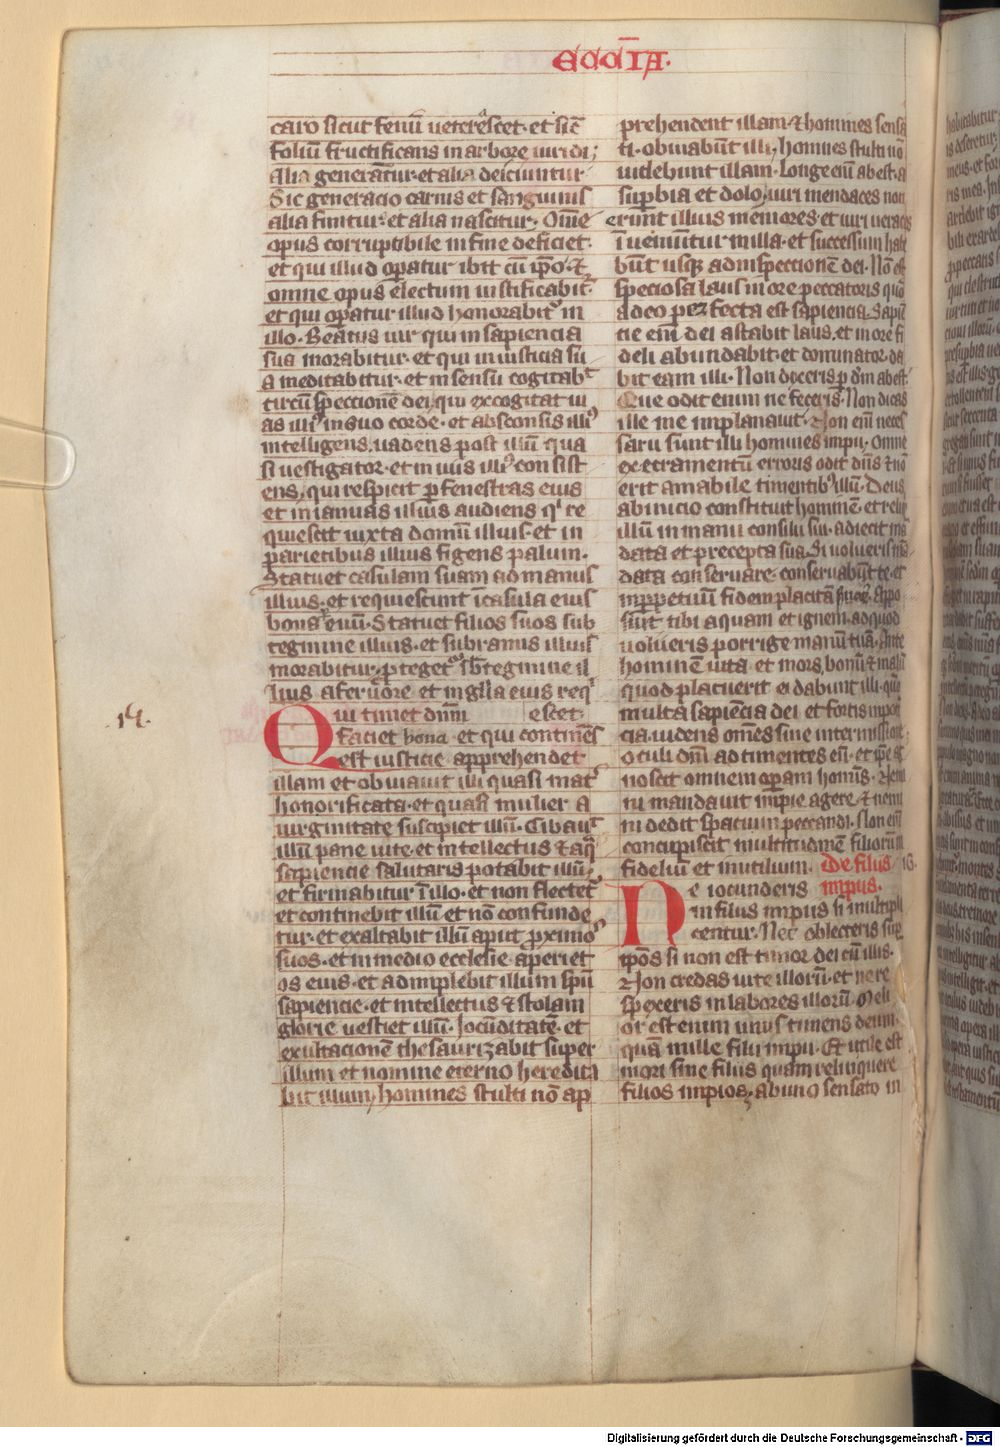 ECCC̄IA·
caro sicut fenū ueterêscet· et sic̄
foliū fructificans in arbore uiridi;
Alia generātur· et alia deiciuntur
Sic generacio carnis et sanguinis
alia finitur· et alia nascitur· Om̄e
opus corruptibile in fine deficiet·
et qui illud oꝑatur ibit cū ip̄o· ⁊
omne opus electum iustificabit᷑
et qui oꝑatur illud honorabit᷑ in
illo· Beatus uir qui in sapiencia
sua morabitur· et qui in iusticia su
a meditabitur· et in sensu cogitabᵗ
circū speccionē dei, qui excogitat ui
as illiꝰ in suo corde· et absconsis illiꝰ
intelligens, uadens post illū qua
si uestigator· et in uiis illiꝰ consist
ens, qui respicit ꝑ fenestras eius
et in ianuas illius audiens qⁱ re
quiescit iuxta domū illius· et in
parietibus illius figens palum·
Statuet casulam suam ad manus
illius· et requiescunt ī casula eius
bona euū· Statuet filios suos sub
tegmine illius· et sub ramis illius
morabitur, ꝓteget᷑ sb̄ tegmine il
lius a feruore et in gl̄ia eius reqⁱ
escet·
14·
Qui timet dn̄m
faciet bona· et qui continēs
est iusticie apprehendet
illam et obuiauit illi quasi mat᷑
honorificata· et quasi mulier a
uirginitate suscipiet illū· Cibauᵗ
illū pane uite et intellectus ⁊ aq̄
sapiencie salutaris potabit illū,
et firmabitur ī illo· et non flectet᷑
et continebit illū et nō confunde
tur· et exaltabit illū aput ꝓximoˢ
suos· et in medio ecclesie aperiet
os eius· et adimplebit illum sp̄u
sapiencie· et intellectus ⁊ stolam
glorie uestiet illū· Iocūditatē· et
exultacionē thesaurizabit super
illum et nomine eterno heredita
bit illum, homines stulti nō ap
prehendent illam ⁊ homines sensa
ti· obuiabūt illi, homines stulti nō
uidebunt illam· Longe eni̅ abest· a
suꝑbia et dolo, uiri mendaces non
erunt illius memores· et uiri ueraces
īueniūtur in illa· et successum habe
būt usq; ad inspeccionē dei· Nō est
speciosa laus in ore peccatoris quō
a deo per fecta est sapiencia· Sapiē
cie enī dei astabit laus, et in ore fi
deli abundabit· et dominator da
bit eam illi· Non dixeris ꝑ dm̄ abest·
Que odit enim ne feceris· Non dicas
ille me inplanauit· Non enī neces
sarii sunt illi homines impii, Omne
execramentū erroris odit dn̄s ⁊ nō
erit amabile timentibꝰ illū· Deus
ab inicio constituit hominē· et reliqⁱ
illū in manu consilii sui· adiecit mā
data et precepta sua· Si uolueris mā
data conseruare· conseruabūt te· et
inꝑpetuū fidem placitā suare· Appo
suit tibi aquam et ignem· ad quod
uolueris porrige manū tuā· Ante
hominē uita et mors, bonū ⁊ malū
quod placuerit ei dabunt illi· qm̄
multa sapiēcia dei et fortis in poten
cia· uidens om̄es sine intermissione
Oculi dn̄i ad timentes eū· et ip̄e ag
noscit omnem oꝑam homīs· Nemi
ni mandauit impie agere· ⁊ nemi
ni dedit spacium peccandi· Non enī
concupiscit multitudinē filiorum
fideliū et inutilium· De filiis impiis· 16·
Ne iocunderis
in filiis impiis si multipli
centur· Nec oblecteris suꝑ
ipōs si non est timor dei cū illis·
Non credas uite illorū· et ne re
spexeris in labores illorū· Meli
or est enim unus timens deum·
quā mille filii impii· Et utile est
mori sine filiis quam relinquere
filios impios, ab uno sensato in
Digitalisierung gefördert durch die Deutsche Forschungsgemeinschaft - DFG